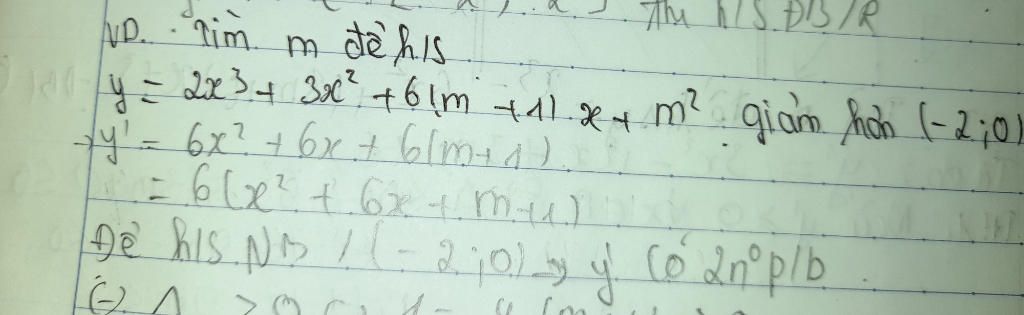 Thu h/s ĐB/R
VD. Tìm m để h/s
y = 2x³ + 3x² + 6(m + 1)x + m² giảm hơn (-2;0)
→ y' = 6x² + 6x + 6(m+1)
= 6(x² + 6x + m+1)
Để h/s NB / (-2;0) → y' có 2n⁰ p/b
(=) Δ > 0